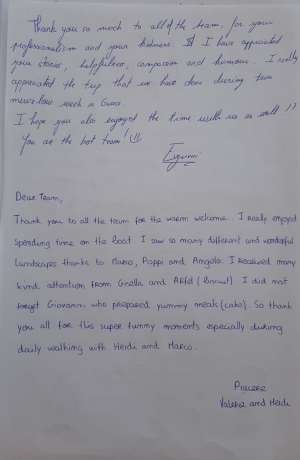 Thank you so much to all of the team, for your
professionalism and your kindness. I have appreciated
your stories, helpfulness, compassion and humour. I really
appreciated the trip that we have done during two
marvelous week in
I hope you also enjoyed the time with us as well !!
You are the best team!
Dear Team,
Thank you to all the team for the warm welcome. I really enjoyed
spending time on the boat. I saw so many different and wonderful
landscapes thanks to Marco, Poppi and Angelo. I received many
kind attention from Gisella and I did not
forget Giovanni who prepared yummy meals (cake). So thank
you all for this super funny moments especially during
daily walking with Heidi and Marco.
Valerie and Heidi